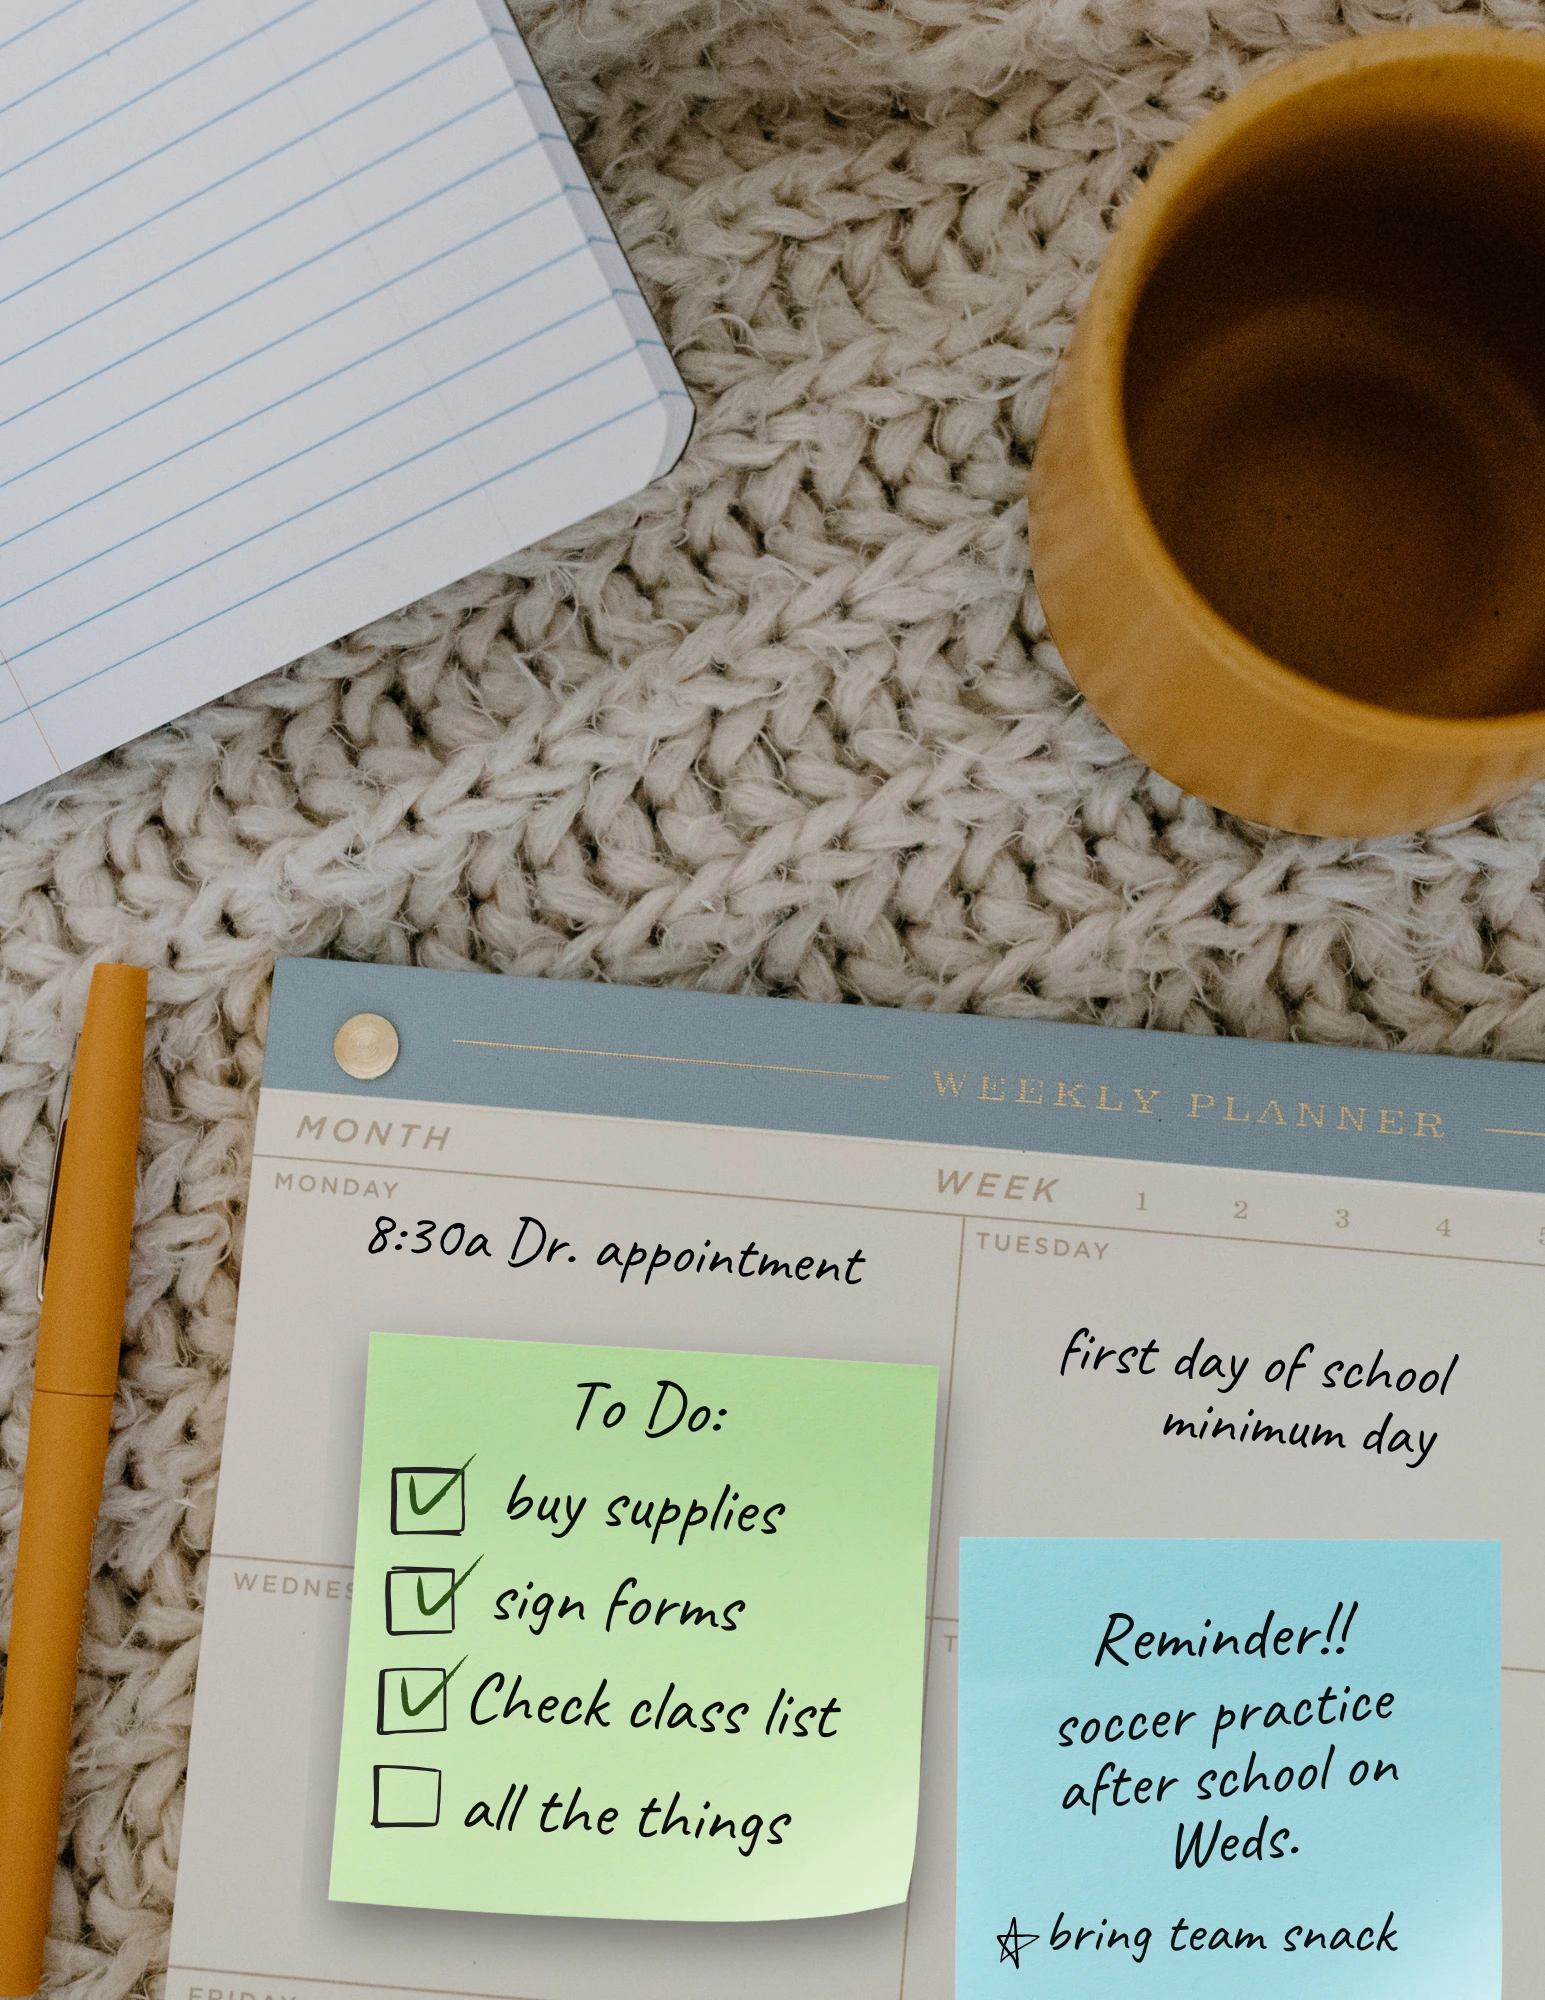 WEEKLY PLANNER
MONTH
WEEK 1 2 3 4
MONDAY
8:30a Dr. appointment
TUESDAY
first day of school
minimum day
To Do:
buy supplies
sign forms
Check class list
all the things
Reminder!!
soccer practice
after school on
Weds.
☆ bring team snack
FRIDAY